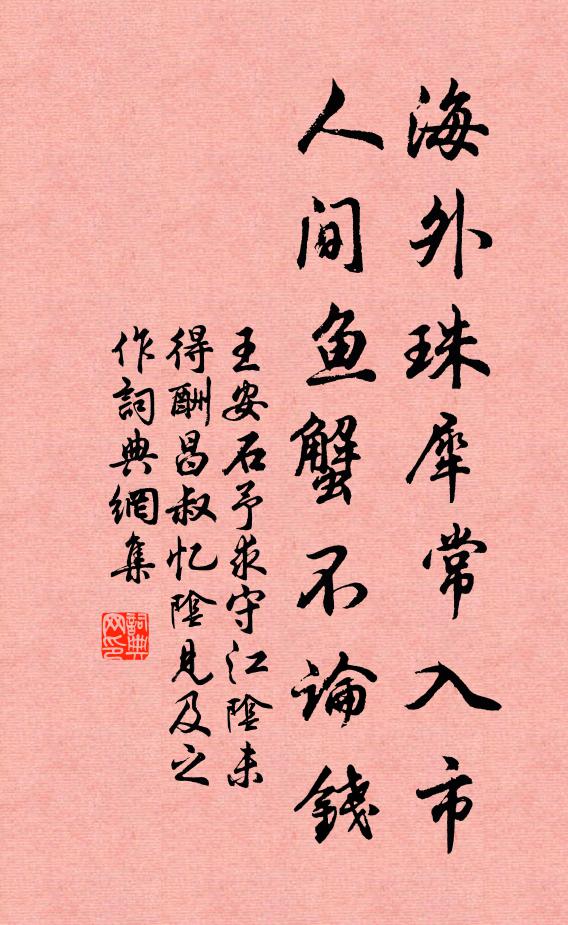 海外珠犀常入市
人间鱼蟹不論錢
王安石予求守江陰未
得酬昌叔忆陰見及之
作詞典網集
詞典
网印